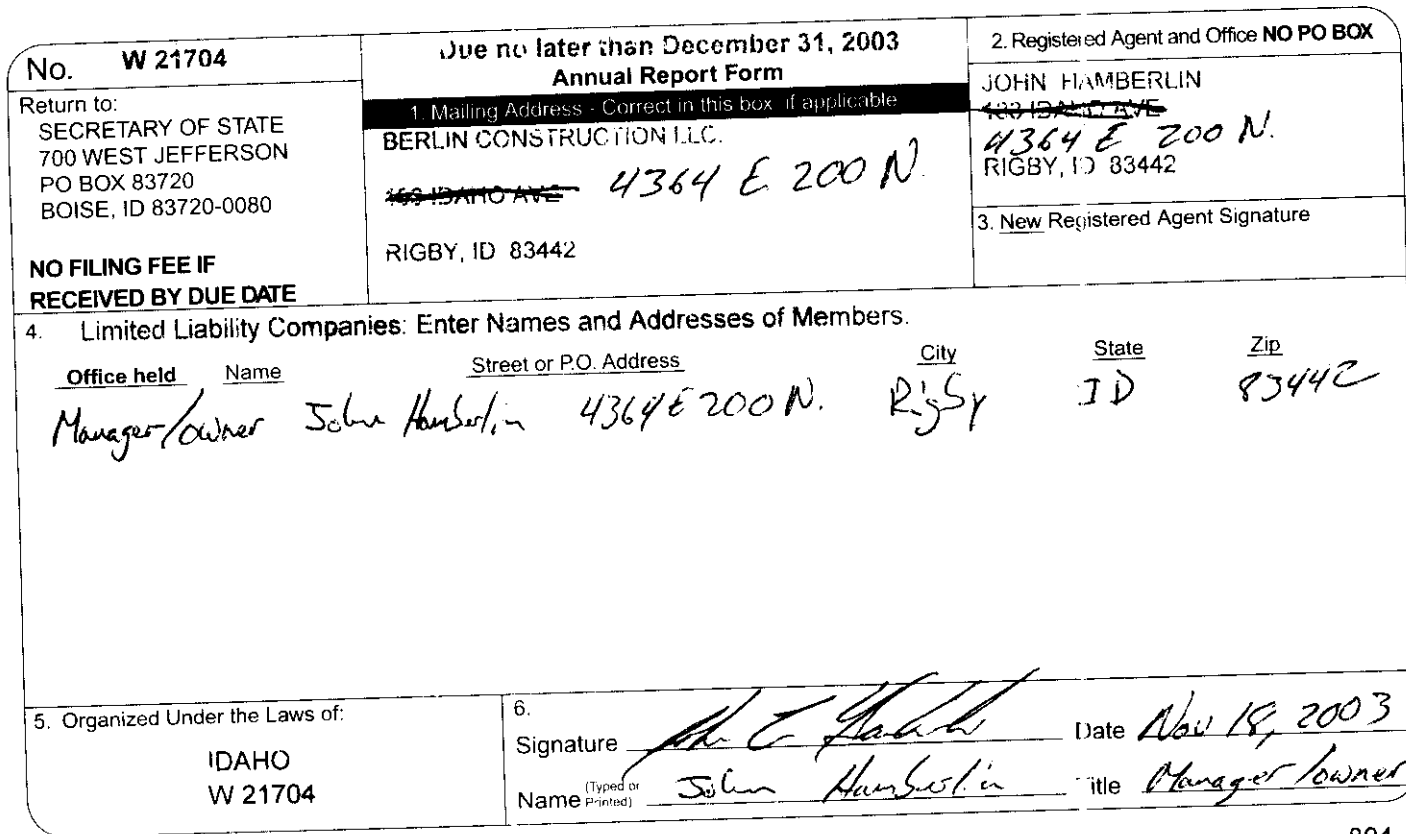 No. W 21704
Return to:
SECRETARY OF STATE
700 WEST JEFFERSON
PO BOX 83720
BOISE, ID 83720-0080
NO FILING FEE IF
RECEIVED BY DUE DATE
Due no later than December 31, 2003
Annual Report Form
1. Mailing Address - Correct in this box if applicable
BERLIN CONSTRUCTION LLC.
4364 E 200 N.
RIGBY, ID 83442
2. Registered Agent and Office NO PO BOX
JOHN HAMBERLIN
4364 E 200 N.
RIGBY, ID 83442
3. New Registered Agent Signature
4. Limited Liability Companies: Enter Names and Addresses of Members.
Office held Name Street or P.O. Address City State Zip
Manager/owner John Hamberlin 4364 E 200 N. Rigby ID 83442
5. Organized Under the Laws of:
IDAHO
W 21704
6.
Signature Date Nov 18, 2003
Name (Typed or Printed) John Hamberlin Title Manager/owner